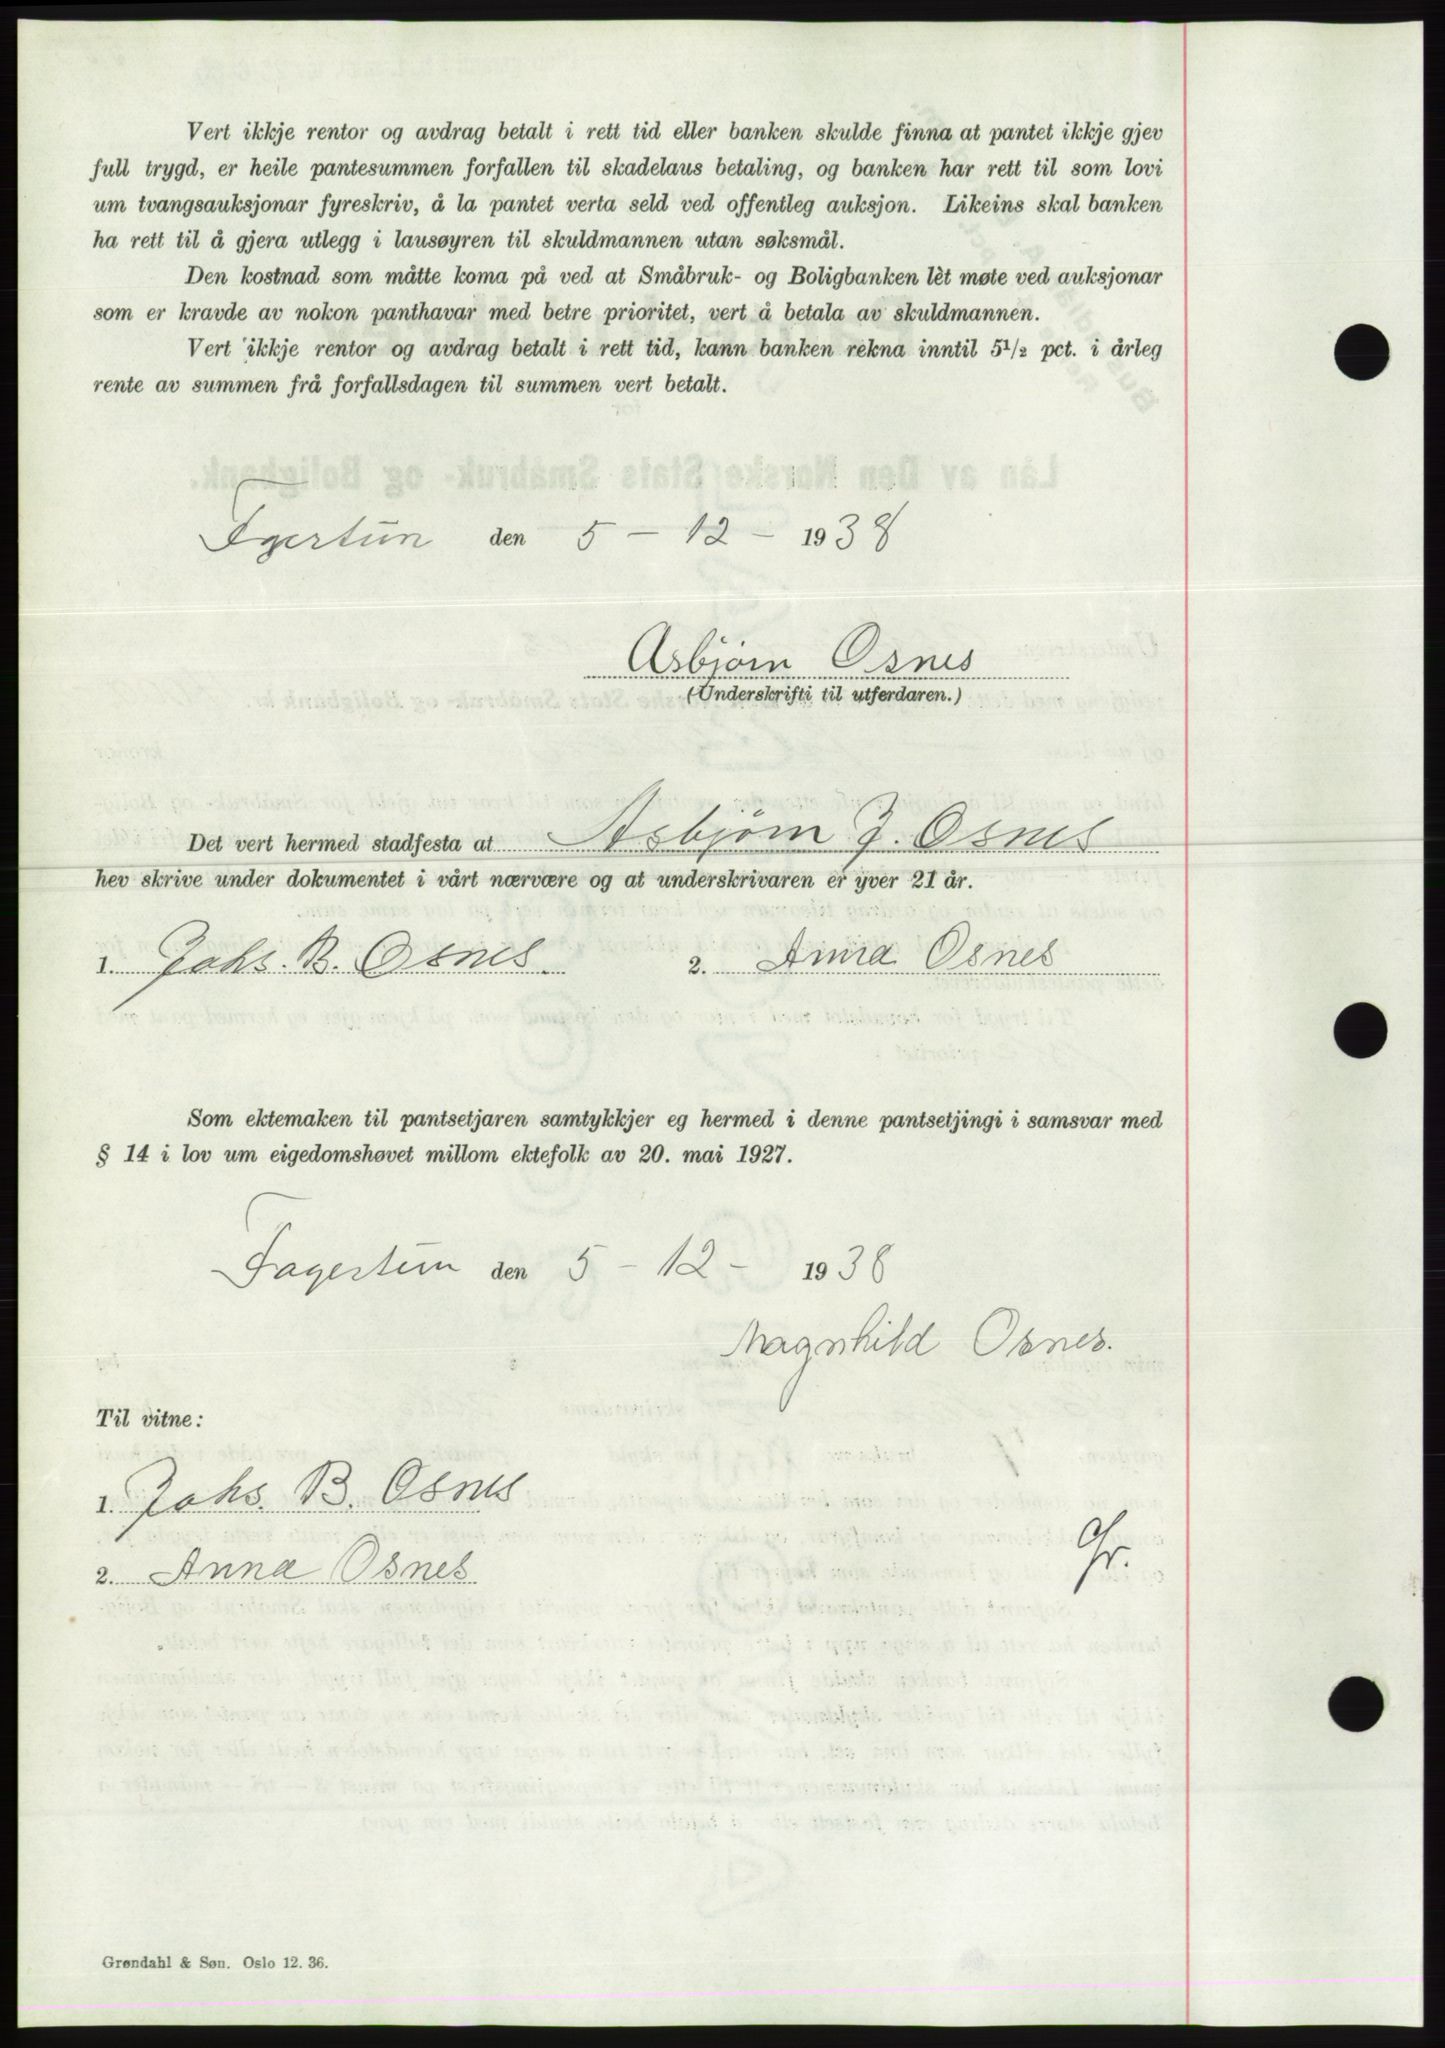 Vert ikkje rentor og avdrag betalt i rett tid eller banken skulde finna at pantet ikkje gjev
full trygd, er heile pantesummen forfallen til skadelaus betaling, og banken har rett til som lovi
um tvangsauksjonar fyreskriv, å la pantet verta seld ved offentleg auksjon. Likeins skal banken
ha rett til å gjera utlegg i lausøyren til skuldmannen utan søksmål.
Den kostnad som måtte koma på ved at Småbruk- og Boligbanken lèt møte ved auksjonar
som er kravde av nokon panthavar med betre prioritet, vert å betala av skuldmannen.
Vert ikkje rentor og avdrag betalt i rett tid, kann banken rekna inntil 5 1/2 pct. i årleg
rente av summen frå forfallsdagen til summen vert betalt.
Fgertun den 5 - 12 - 1938
Asbjørn Osnes
(Underskrifti til utferdaren.)
Det vert hermed stadfesta at Asbjørn J. Osnes
hev skrive under dokumentet i vårt nærvære og at underskrivaren er yver 21 år.
1. Johs. B. Osnes. 2. Anna Osnes
Som ektemaken til pantsetjaren samtykkjer eg hermed i denne pantsetjingi i samsvar med
§ 14 i lov um eigedomshøvet millom ektefolk av 20. mai 1927.
Fagertun den 5 - 12 - 1938
Magnhild Osnes.
Til vitne:
1. Johs. B. Osnes
2. Anna Osnes
Gr.
Grøndahl & Søn. Oslo 12. 36.